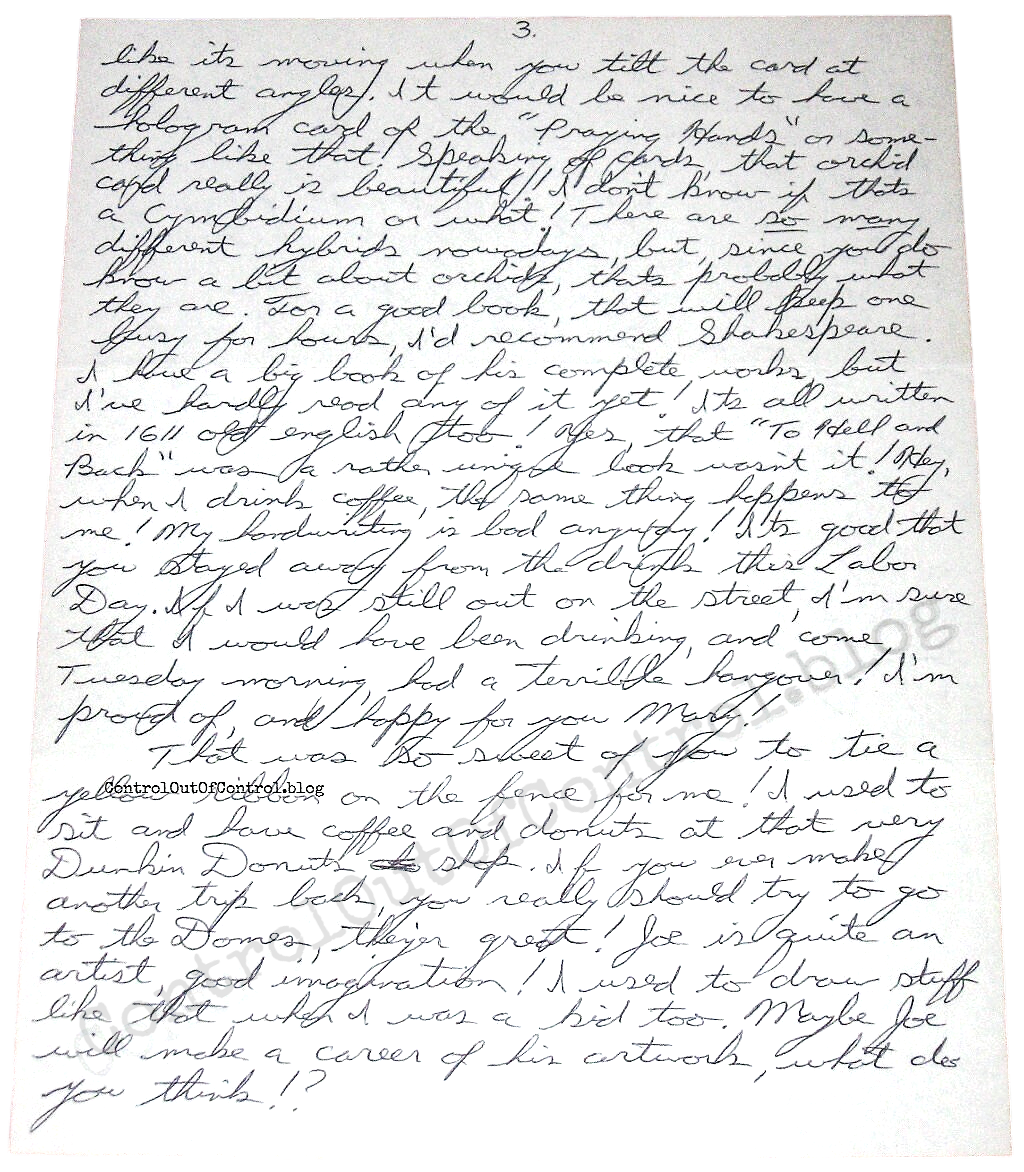 3.
like its moving when you tilt the card at
different angles. It would be nice to have a
hologram card of the "Praying Hands" or some-
thing like that! Speaking of cards, that orchid
card really is beautiful! I don't know if thats
a Cymbidium or what! There are so many
different hybrids nowadays, but, since you do
know a bit about orchids, thats probably what
they are. For a good book, that will keep one
busy for hours, I'd recommend Shakespeare.
I have a big book of his complete works, but
I've hardly read any of it yet! Its all written
in 1611 old english too! Yes, that "To Hell and
Back" was a rather unique book wasn't it! Hey,
when I drink coffee, the same thing happens to
me! My handwriting is bad anyway! Its good that
you stayed away from the drink this Labor
Day. If I was still out on the street, I'm sure
that I would have been drinking, and come
Tuesday morning, had a terrible hangover! I'm
proud of, and happy for you Mary!
That was so sweet of you to tie a
yellow ribbon on the fence for me! I used to
ControlOutOfControl.blog
sit and have coffee and donuts at that very
Dunkin Donuts shop. If you ever make
another trip back, you really should try to go
to the Domes, theyer great! Joe is quite an
artist, good imagination! I used to draw stuff
like that when I was a kid too. Maybe Joe
will make a career of his artwork, what do
you think!?
ControlOutOfControl.blog